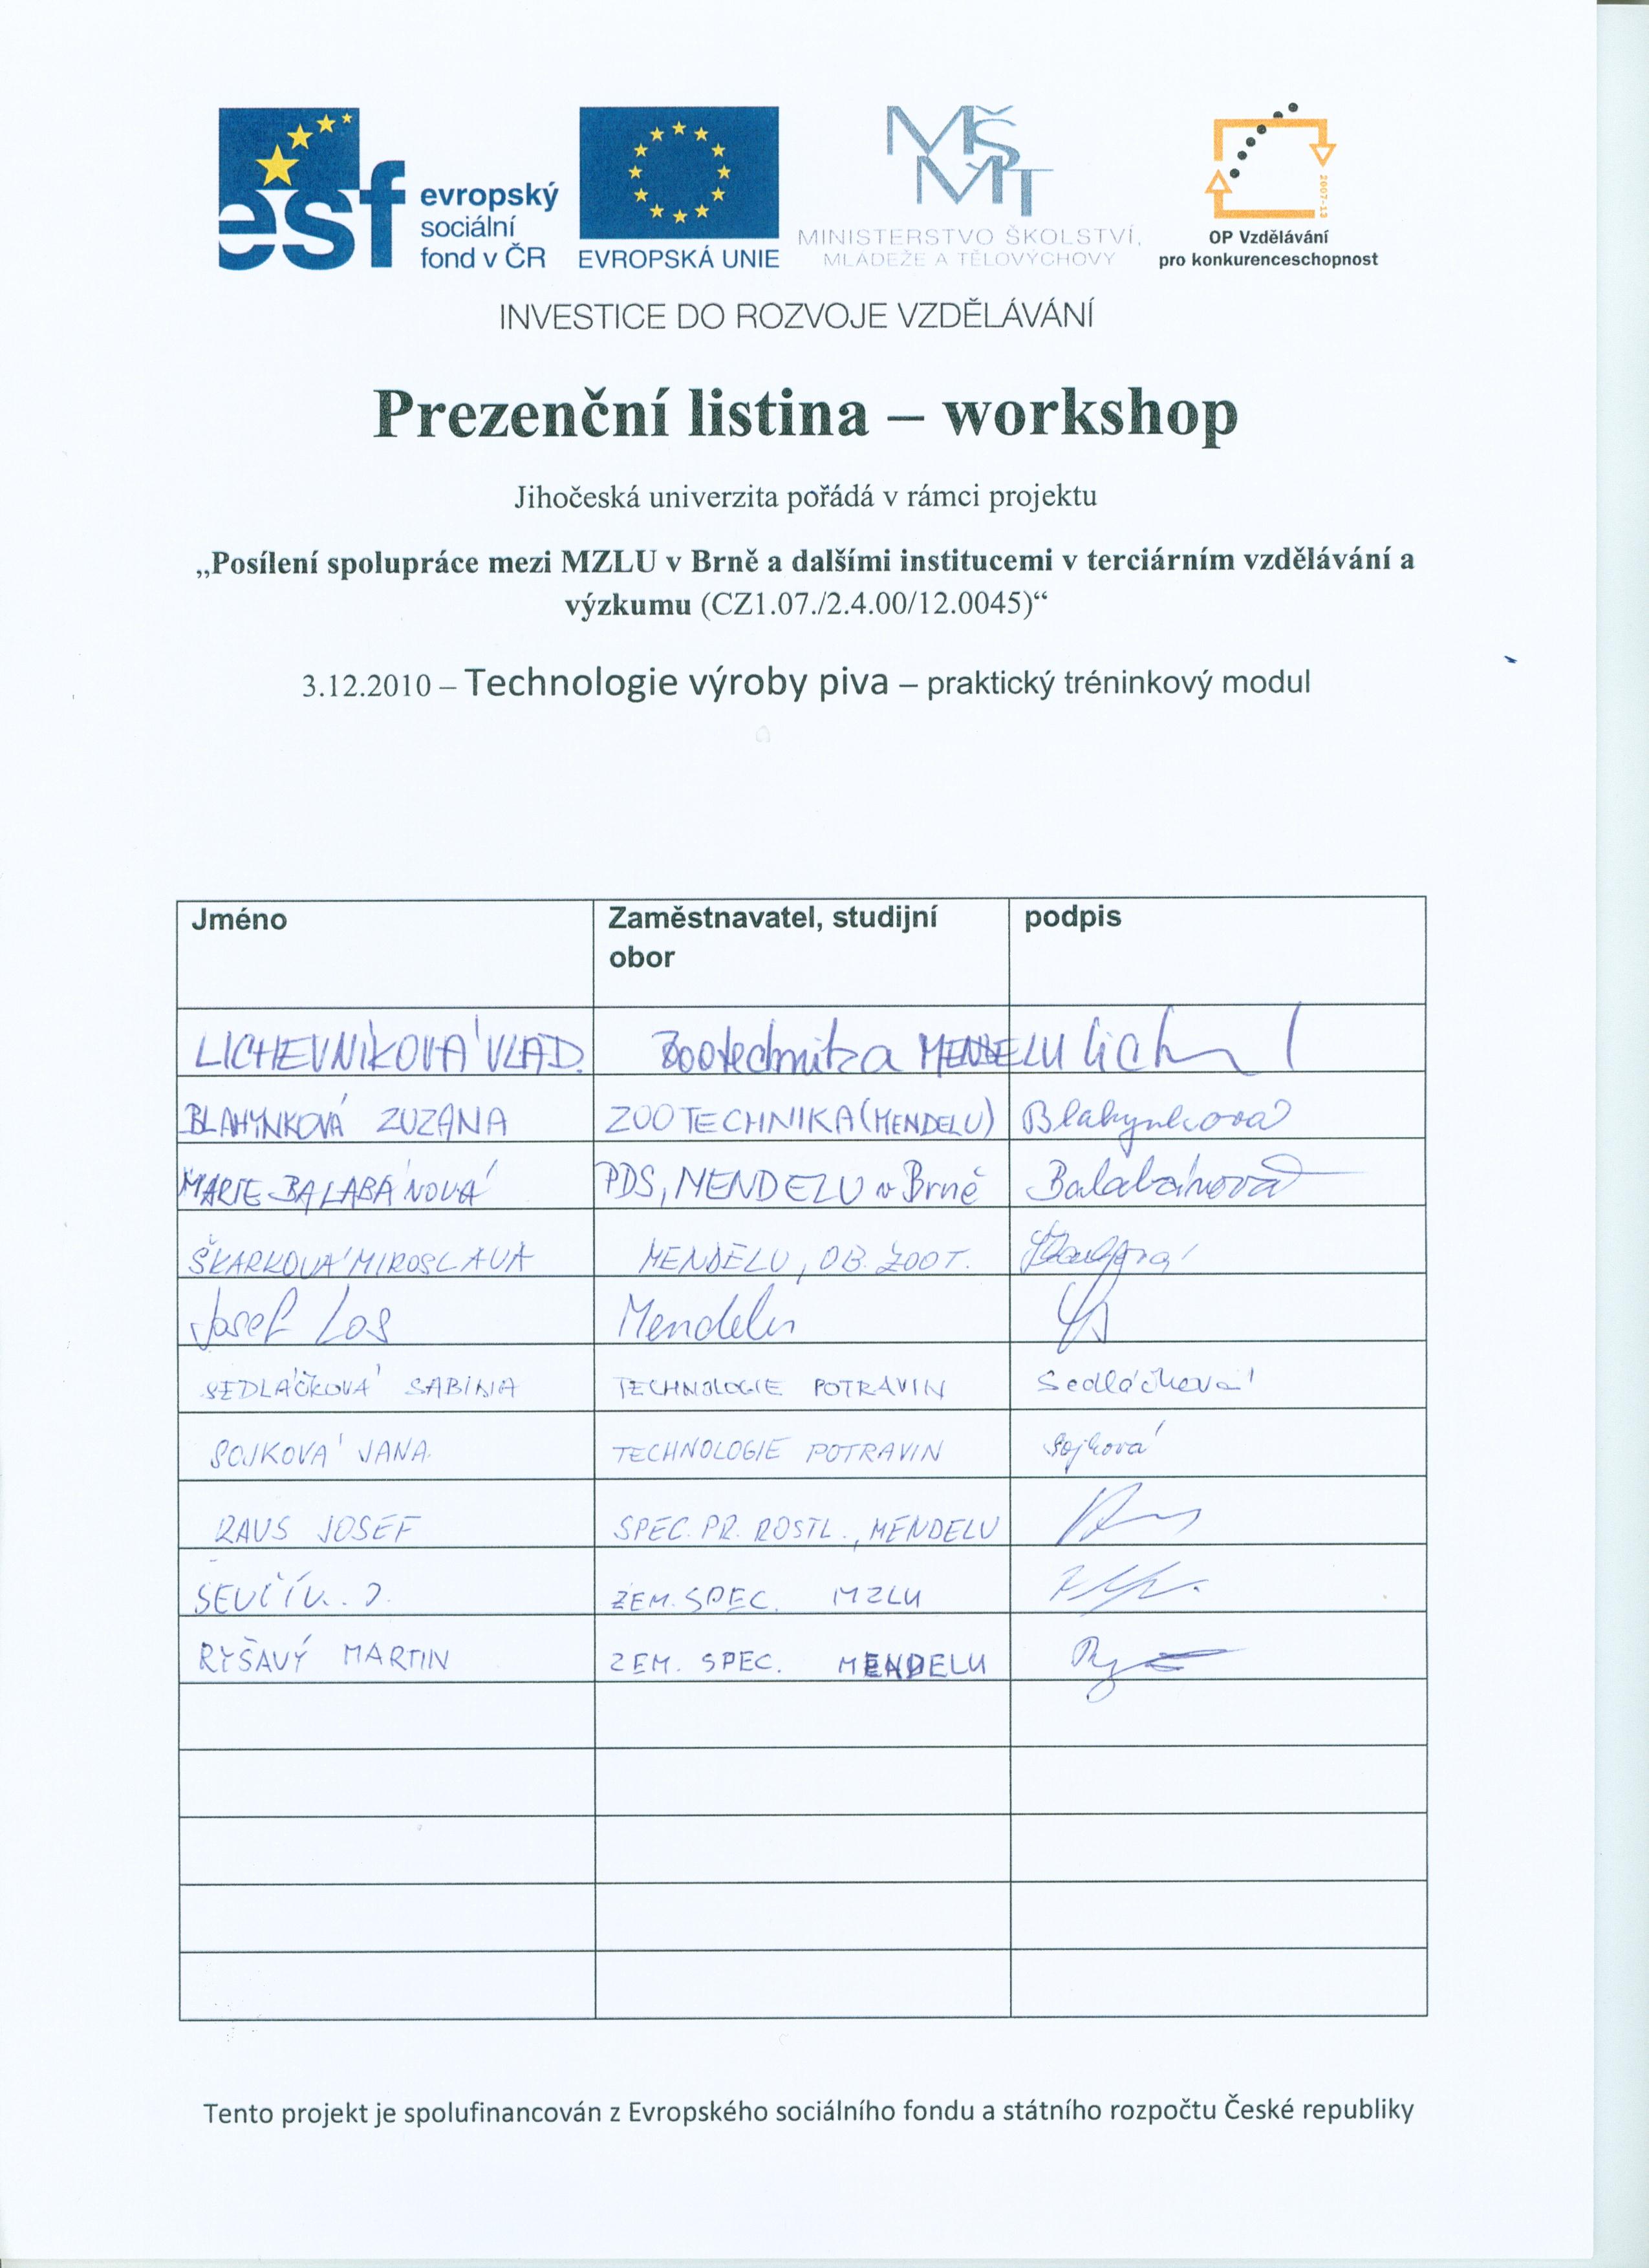 esf evropský sociální fond v ČR
EVROPSKÁ UNIE
MŠMT
MINISTERSTVO ŠKOLSTVÍ,
MLÁDEŽE A TĚLOVÝCHOVY
2007-13
OP Vzdělávání
pro konkurenceschopnost
INVESTICE DO ROZVOJE VZDĚLÁVÁNÍ
Prezenční listina – workshop
Jihočeská univerzita pořádá v rámci projektu
„Posílení spolupráce mezi MZLU v Brně a dalšími institucemi v terciárním vzdělávání a
výzkumu (CZ1.07./2.4.00/12.0045)“
3.12.2010 – Technologie výroby piva – praktický tréninkový modul
Jméno Zaměstnavatel, studijní podpis
obor
LICHEVNÍKOVÁ VLAD. Zootechnika MENDELU
BLAHYNKOVÁ ZUZANA ZOOTECHNIKA (MENDELU) Blahynková
MARIE BALABÁNOVÁ PDS, MENDELU v Brně Balabánová
ŠKARKOVÁ MIROSLAVA MENDELU, OB. ZOOT.
Josef Los Mendelu
SEDLÁČKOVÁ SABINA TECHNOLOGIE POTRAVIN Sedláčková
SOJKOVÁ JANA TECHNOLOGIE POTRAVIN Sojková
RAUS JOSEF SPEC. PR. ROSTL., MENDELU
ZEM. SPEC. MZLU
RYŠAVÝ MARTIN ZEM. SPEC. MENDELU
Tento projekt je spolufinancován z Evropského sociálního fondu a státního rozpočtu České republiky